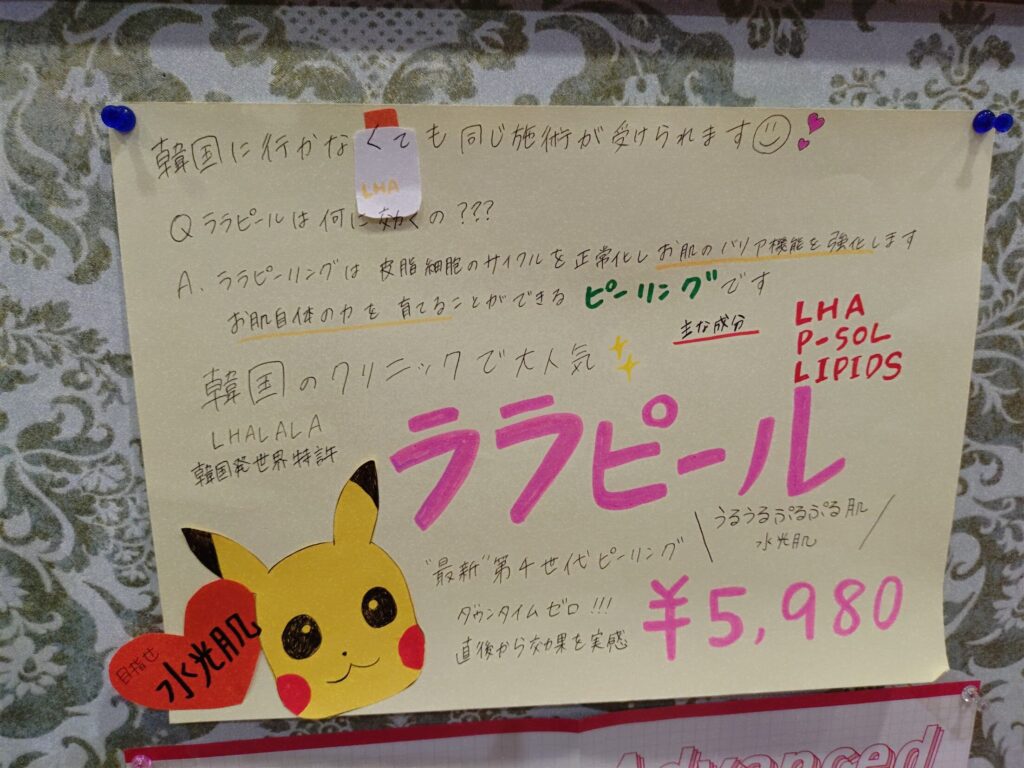 韓国に行かなくても同じ施術が受けられます
LHA
Qララピールは何に効くの???
A.ララピーリングは皮脂細胞のサイクルを正常化しお肌のバリア機能を強化します
お肌自体の力を育てることができるピーリングです
主な成分
LHA
P-SOL
LIPIDS
韓国のクリニックで大人気
LHALALA
韓国発世界特許
ララピール
"最新"第4世代ピーリング
\うるうるぷるぷる肌/
水光肌
ダウンタイムゼロ!!!
直後から効果を実感
¥5,980
目指せ
水光肌
Advanced